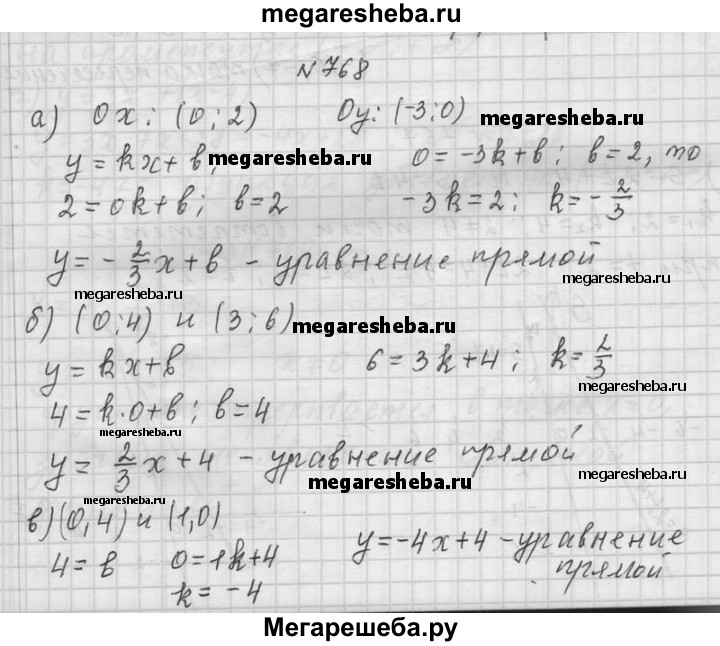 megaresheba.ru
№768
а) Ox: (0;2) Oy: (-3;0) megaresheba.ru
y = kx + в, megaresheba.ru 0 = -3k + в; в = 2, то
2 = 0k + в; в = 2 -3k = 2; k = -2/3
y = -2/3 x + в - уравнение прямой
megaresheba.ru megaresheba.ru
б) (0;4) и (3;6) megaresheba.ru
y = kx + в 6 = 3k + 4; k = 2/3
megaresheba.ru
4 = k·0 + в; в = 4
megaresheba.ru
y = 2/3 x + 4 - уравнение прямой
megaresheba.ru megaresheba.ru
в) (0,4) и (1,0)
4 = в 0 = 1k + 4 y = -4x + 4 - уравнение
k = -4 прямой
megaresheba.ru megaresheba.ru
Мегарешеба.ру